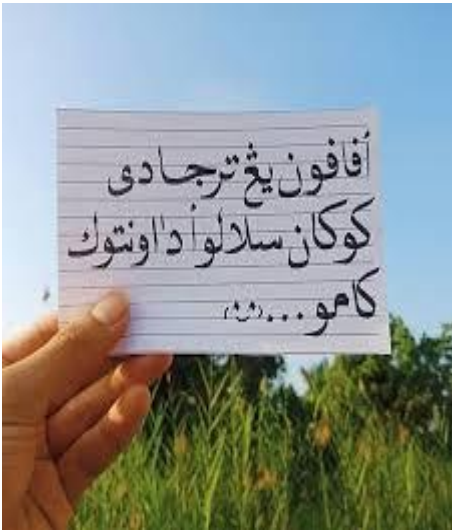 أفافون يڠ ترجادى
كوكان سلالو أد' اونتوك
كامو...